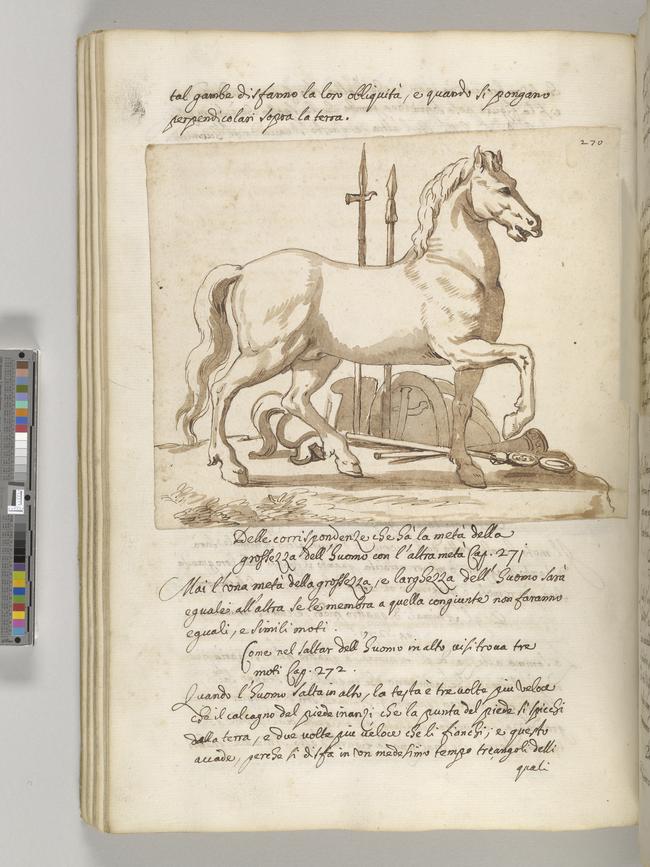 tal gambe disfanno la loro obliquità, e quando si pongano
perpendicolari sopra la terra.
270
Delle corrispondenze che hà la metà della
grossezza dell'huomo con l'altra metà Cap. 271
Mai l'una metà della grossezza, e larghezza dell'huomo sarà
eguale all'altra se le membra a quella congiunte non faranno
eguali, e simili moti.
Come nel saltar dell'huomo in alto vi si trova tre
moti Cap. 272.
Quando l'huomo salta in alto, la testa è tre volte piu veloce
che il calcagno del piede inanzi che la punta del piede si spicchi
dalla terra, e due volte piu veloce che li fianchi; e questo
accade, perche si disfà in un medesimo tempo tre angoli delli
quali